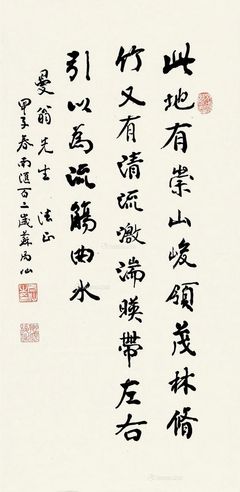 此地有崇山峻領茂林脩
竹又有清流激湍暎帶左右
引以為流觴曲水
曼翁先生 法正
甲子春南通百二歲蘇局仙